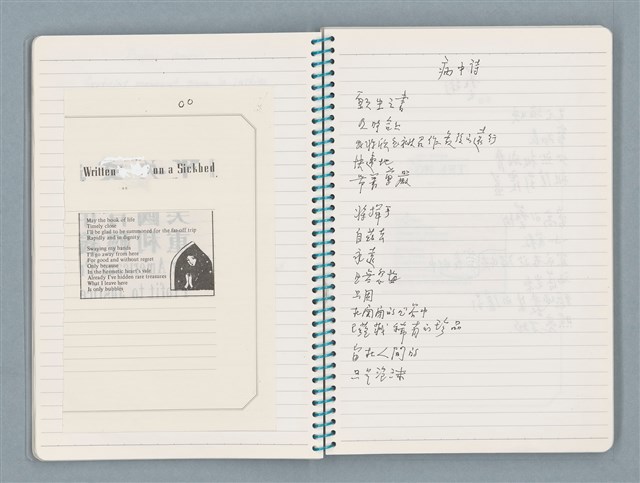 Written on a Sickbed
May the book of life
Timely close
I'll be glad to be summoned for the farsell trip
Rapidly and in dignity
Swaying my hands
I'll go away from here
For good and without regret
Only because
In the hermetic heart's side
Already I've hidden rare treasures
What I leave here
Is only bubbles
病中詩
願生之書
及時
快速地
帶著尊嚴
將揮手
自茲去
永遠
只因
稀有的珍品
留在人間的
只是泡沫